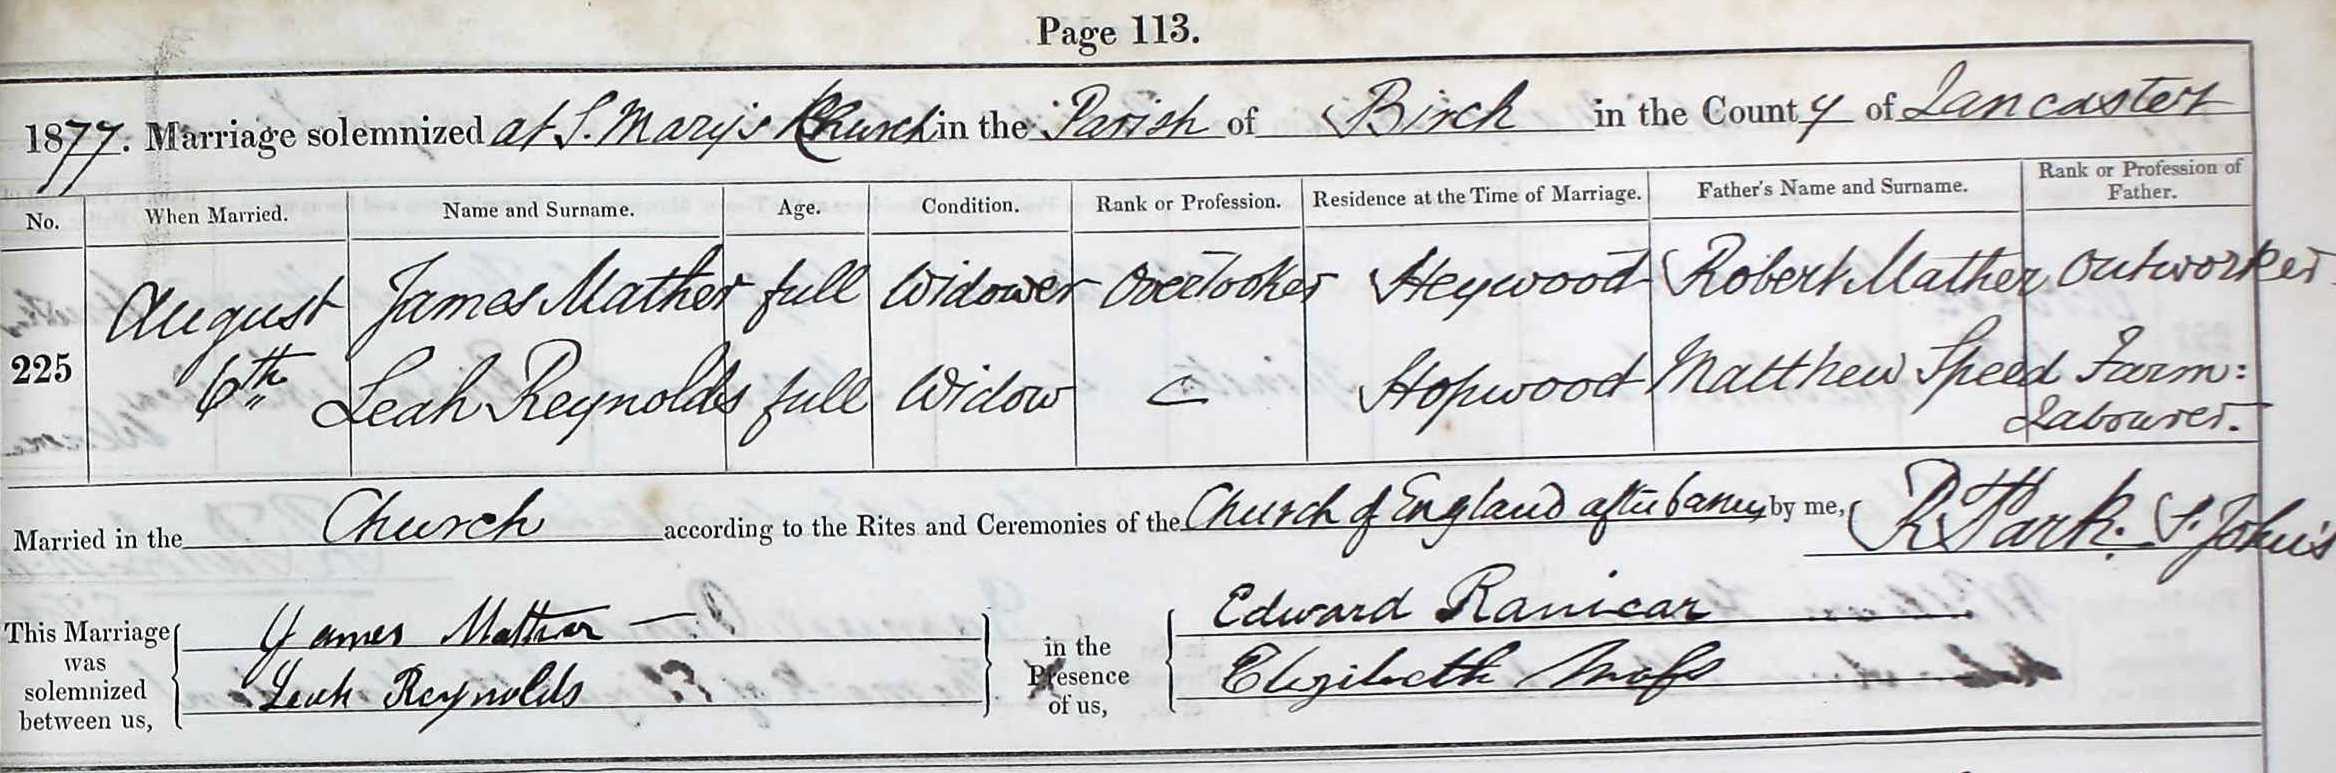 Page 113.
1877. Marriage solemnized at S. Mary's Church in the Parish of Birch in the County of Lancaster
No. When Married. Name and Surname. Age. Condition. Rank or Profession. Residence at the Time of Marriage. Father's Name and Surname. Rank or Profession of Father.
August James Mather full Widower Overlooker Heywood Robert Mather Outworker
225 6th Leah Reynolds full Widow Hopwood Matthew Speed Farm:
Labourer.
Married in the Church according to the Rites and Ceremonies of the Church of England after banns by me, R Park. S. John's
This Marriage was solemnized between us, James Mather
Leah Reynolds
in the Presence of us, Edward Ranicar
Elizibeth Moss